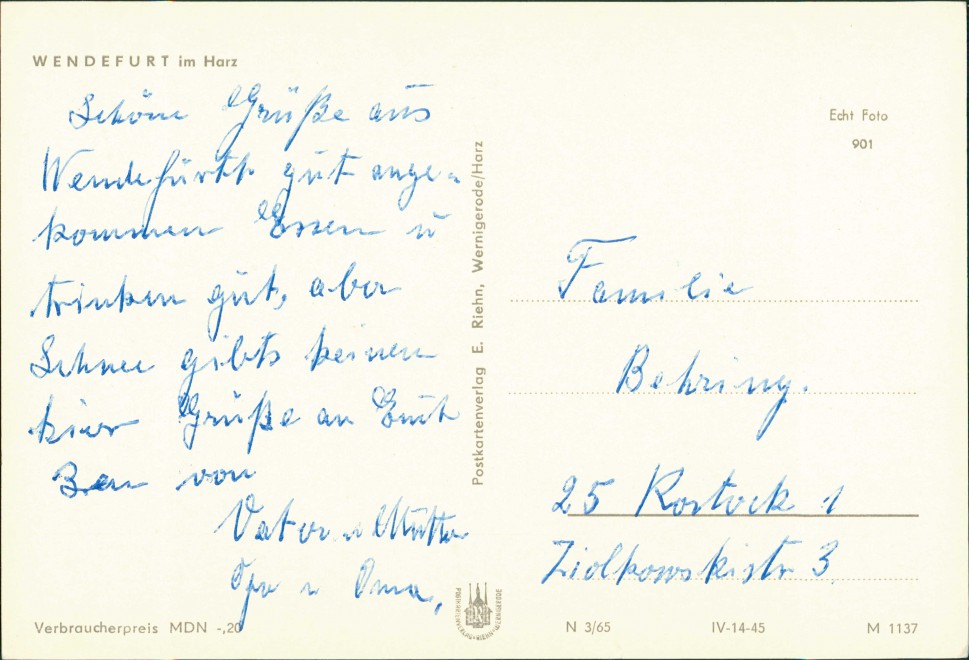 WENDEFURT im Harz
Schöne Grüße aus
Wendefürth gut ange-
kommen Essen u
trinken gut, aber
Schnee gibts keinen
hier Grüße an
von
Vater u Mutter
Opa u Oma,
Verbraucherpreis MDN -,20
Postkartenverlag E. Riehn, Wernigerode/Harz
Echt Foto
901
Familie
Behring.
25 Rostock 1
Ziolkowskistr 3
N 3/65
IV-14-45
M 1137